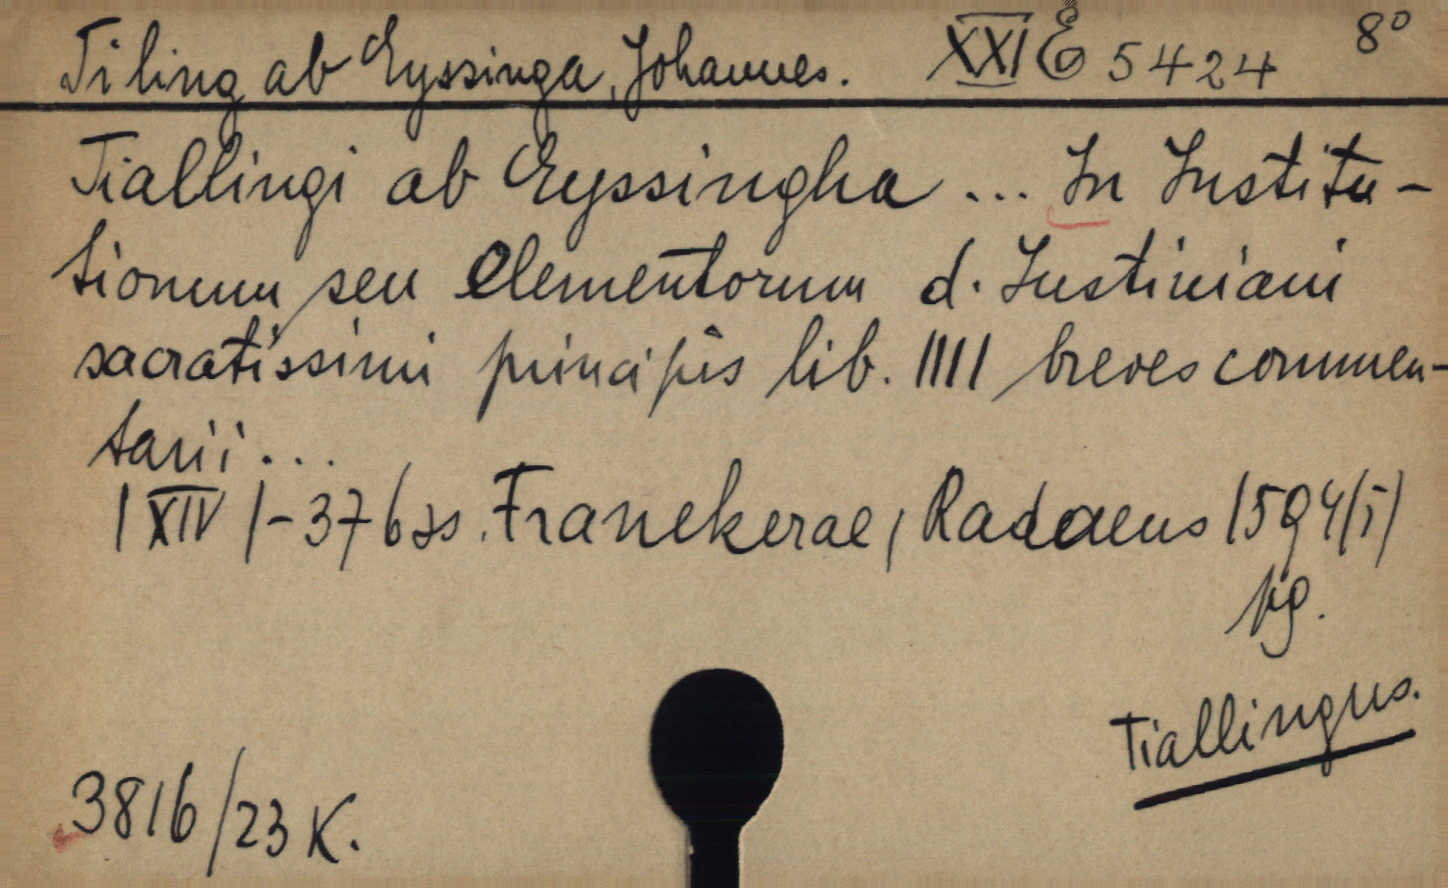 Tiling ab Eyssinga, Johannes. XXI E 5424 8°
Tiallingi ab Eyssingha ... In Institu-
tionum seu Elementorum d. Iustiniani
sacratissimi principis lib. IIII breves commen-
tarii ...
| XIV | - 376 ss. Franekerae, Radaeus 1594/5/
pg.
Tiallingus.
3816/23 K.